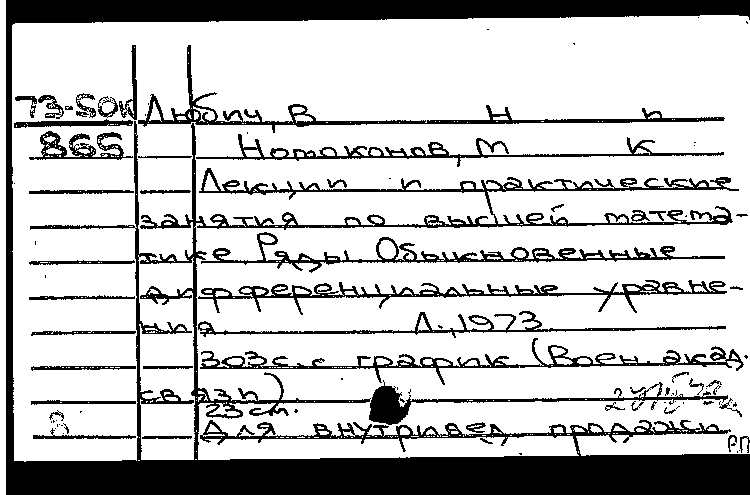 73-50к Любич, В Н и
865 Нотоконов, М К
Лекции и практические
занятия по высшей матема-
тике Ряды Обыкновенные
дифференциальные уравне-
ния. Л., 1973
303 с. с график (Воен. акад.
связи)
23 см.
8 Для внутривед продажи
РП